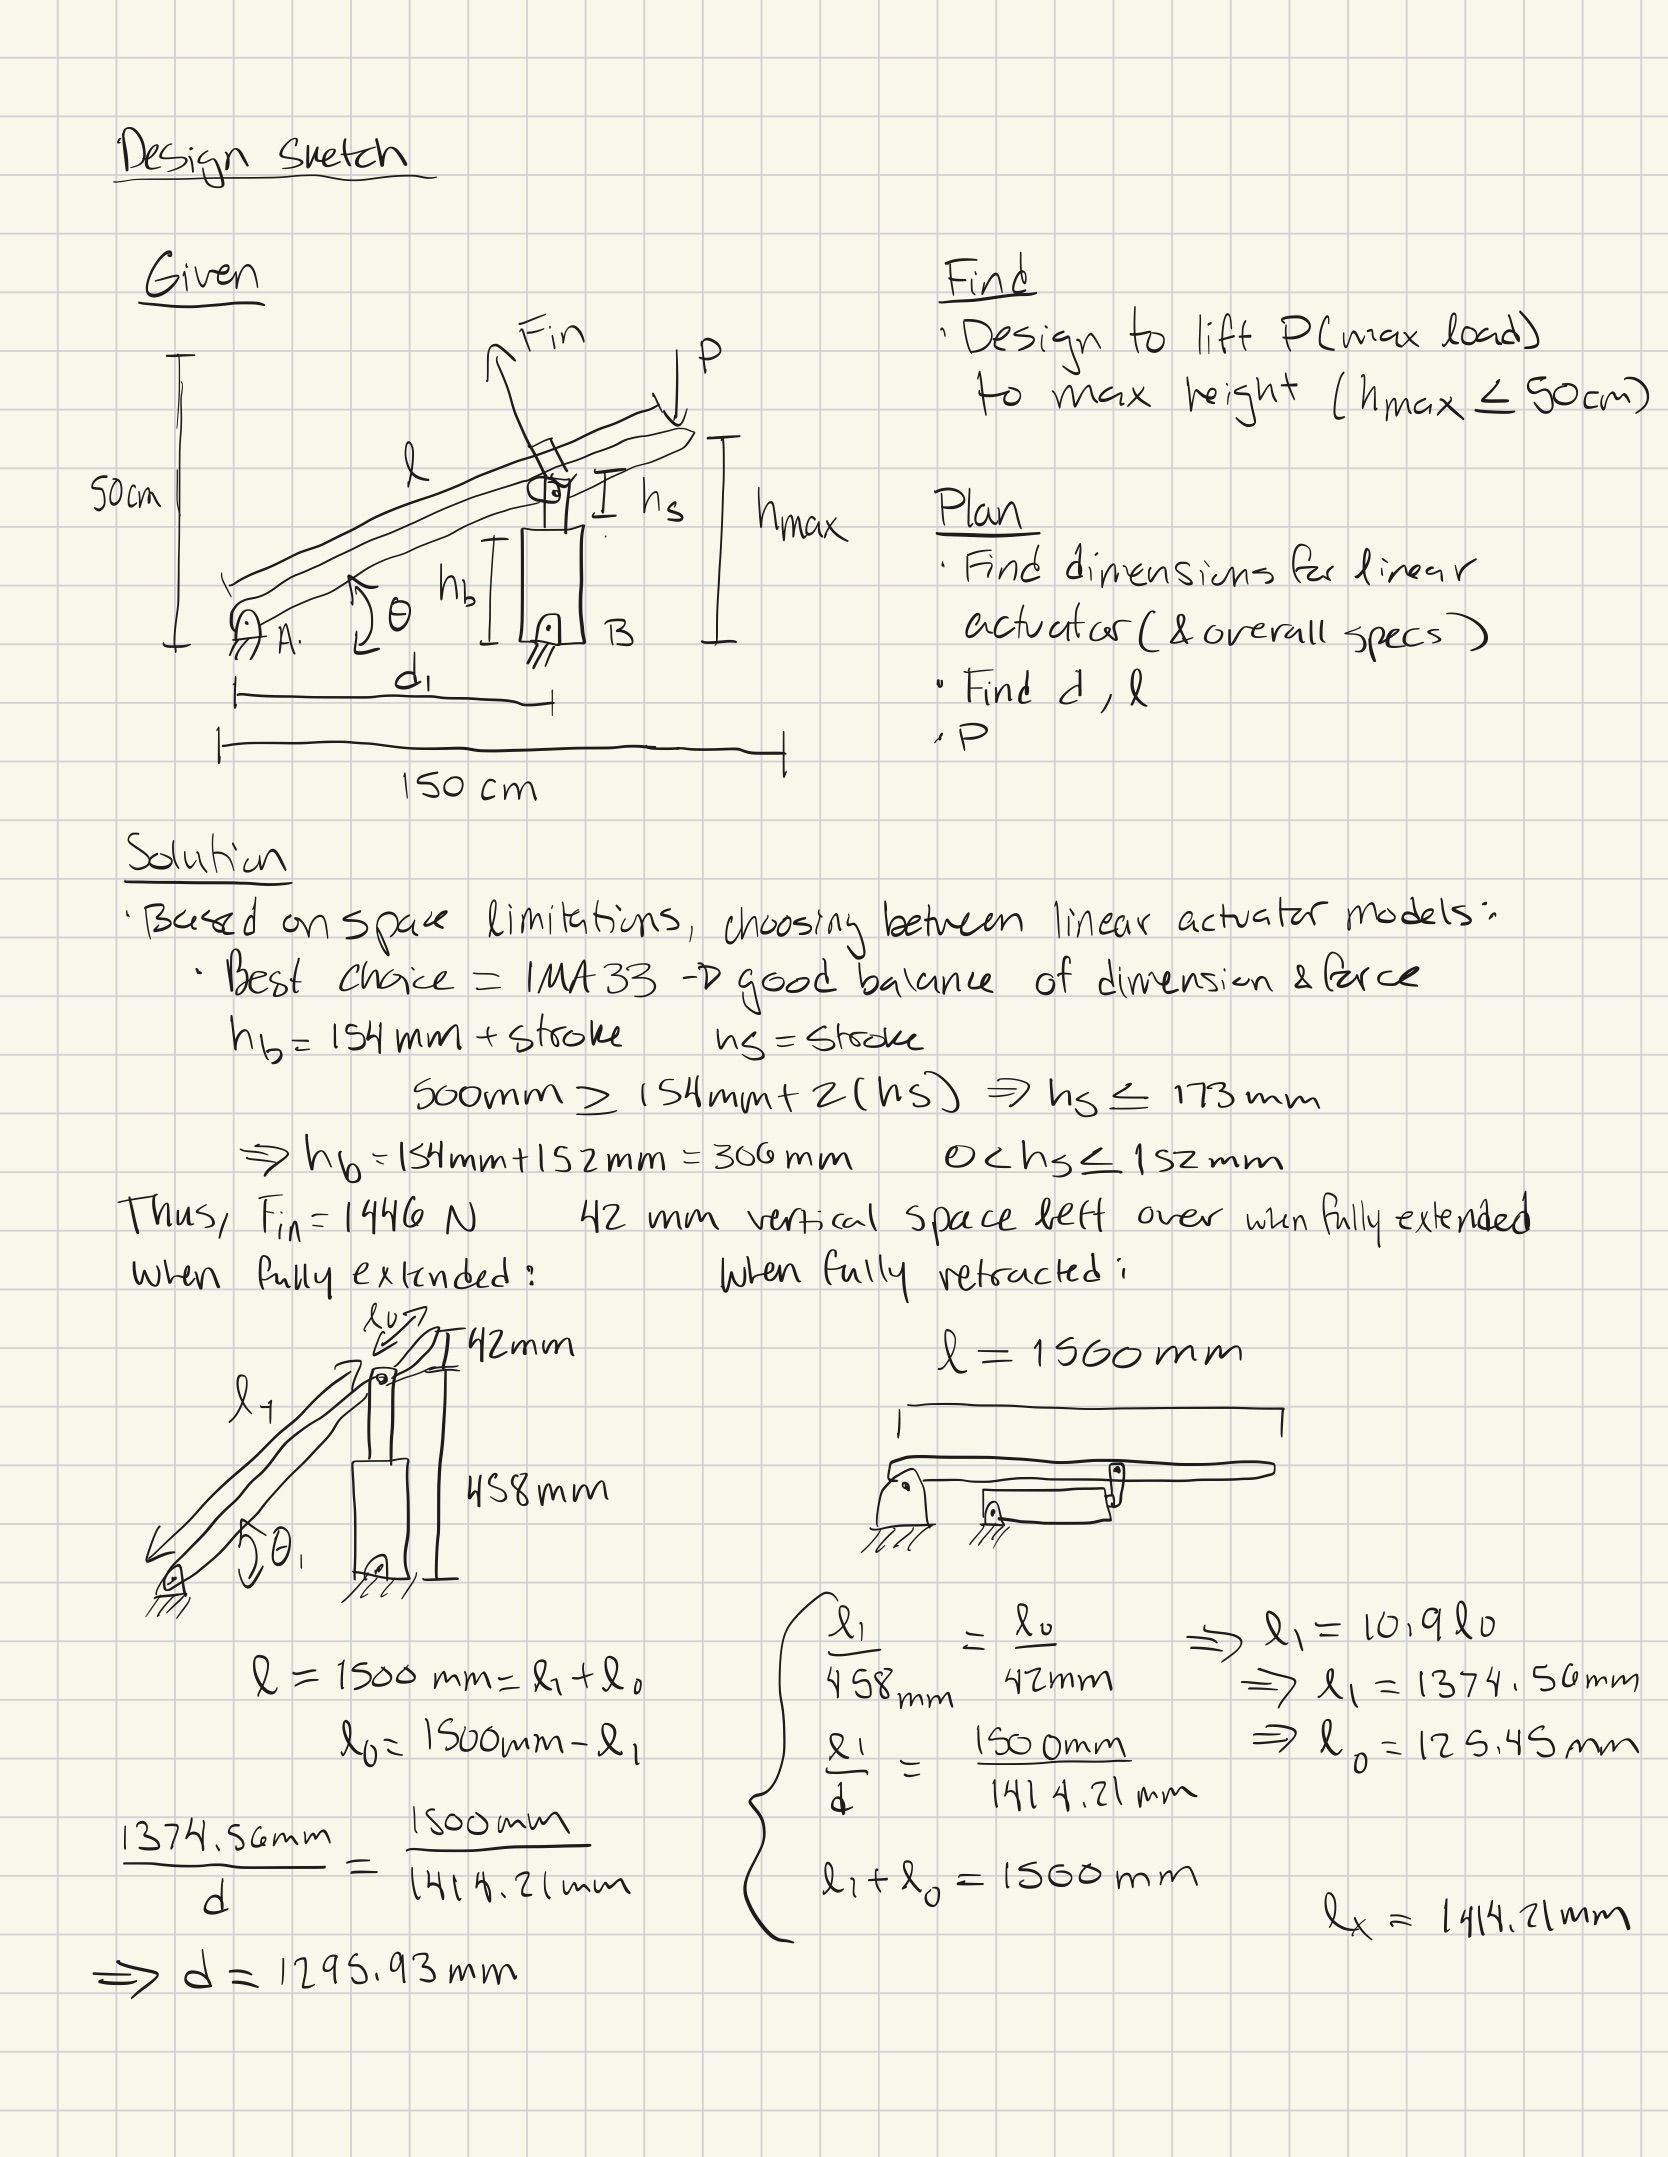 Design sketch
Given
Find
· Design to lift P(max load)
to max height (hmax ≤ 50cm)
Fin
P
l
50cm
hs
hmax
hb
θ
A
B
d1
150 cm
Plan
· Find dimensions for linear
actuator (& overall specs)
· Find d, l
· P
Solution
· Based on space limitations, choosing between linear actuator models:
· Best choice = IMA 33 → good balance of dimension & force
hb = 154mm + stroke hs = stroke
500mm ≥ 154mm + 2(hs) ⇒ hs ≤ 173mm
⇒ hb = 154mm + 152mm = 306mm 0 < hs ≤ 152mm
Thus, Fin = 1446 N 42 mm vertical space left over when fully extended
when fully extended: when fully retracted:
l0
42mm
l1
458mm
θ1
l = 1500mm
l = 1500 mm = l1 + l0
l0 = 1500mm - l1
1374.56mm / d = 1500mm / 1414.21mm
⇒ d = 1295.93mm
l1 / 458mm = l0 / 42mm ⇒ l1 = 10.9 l0
⇒ l1 = 1374.56mm
l1 / d = 1500mm / 1414.21mm ⇒ l0 = 125.45mm
l1 + l0 = 1500mm
lx = 1414.21mm